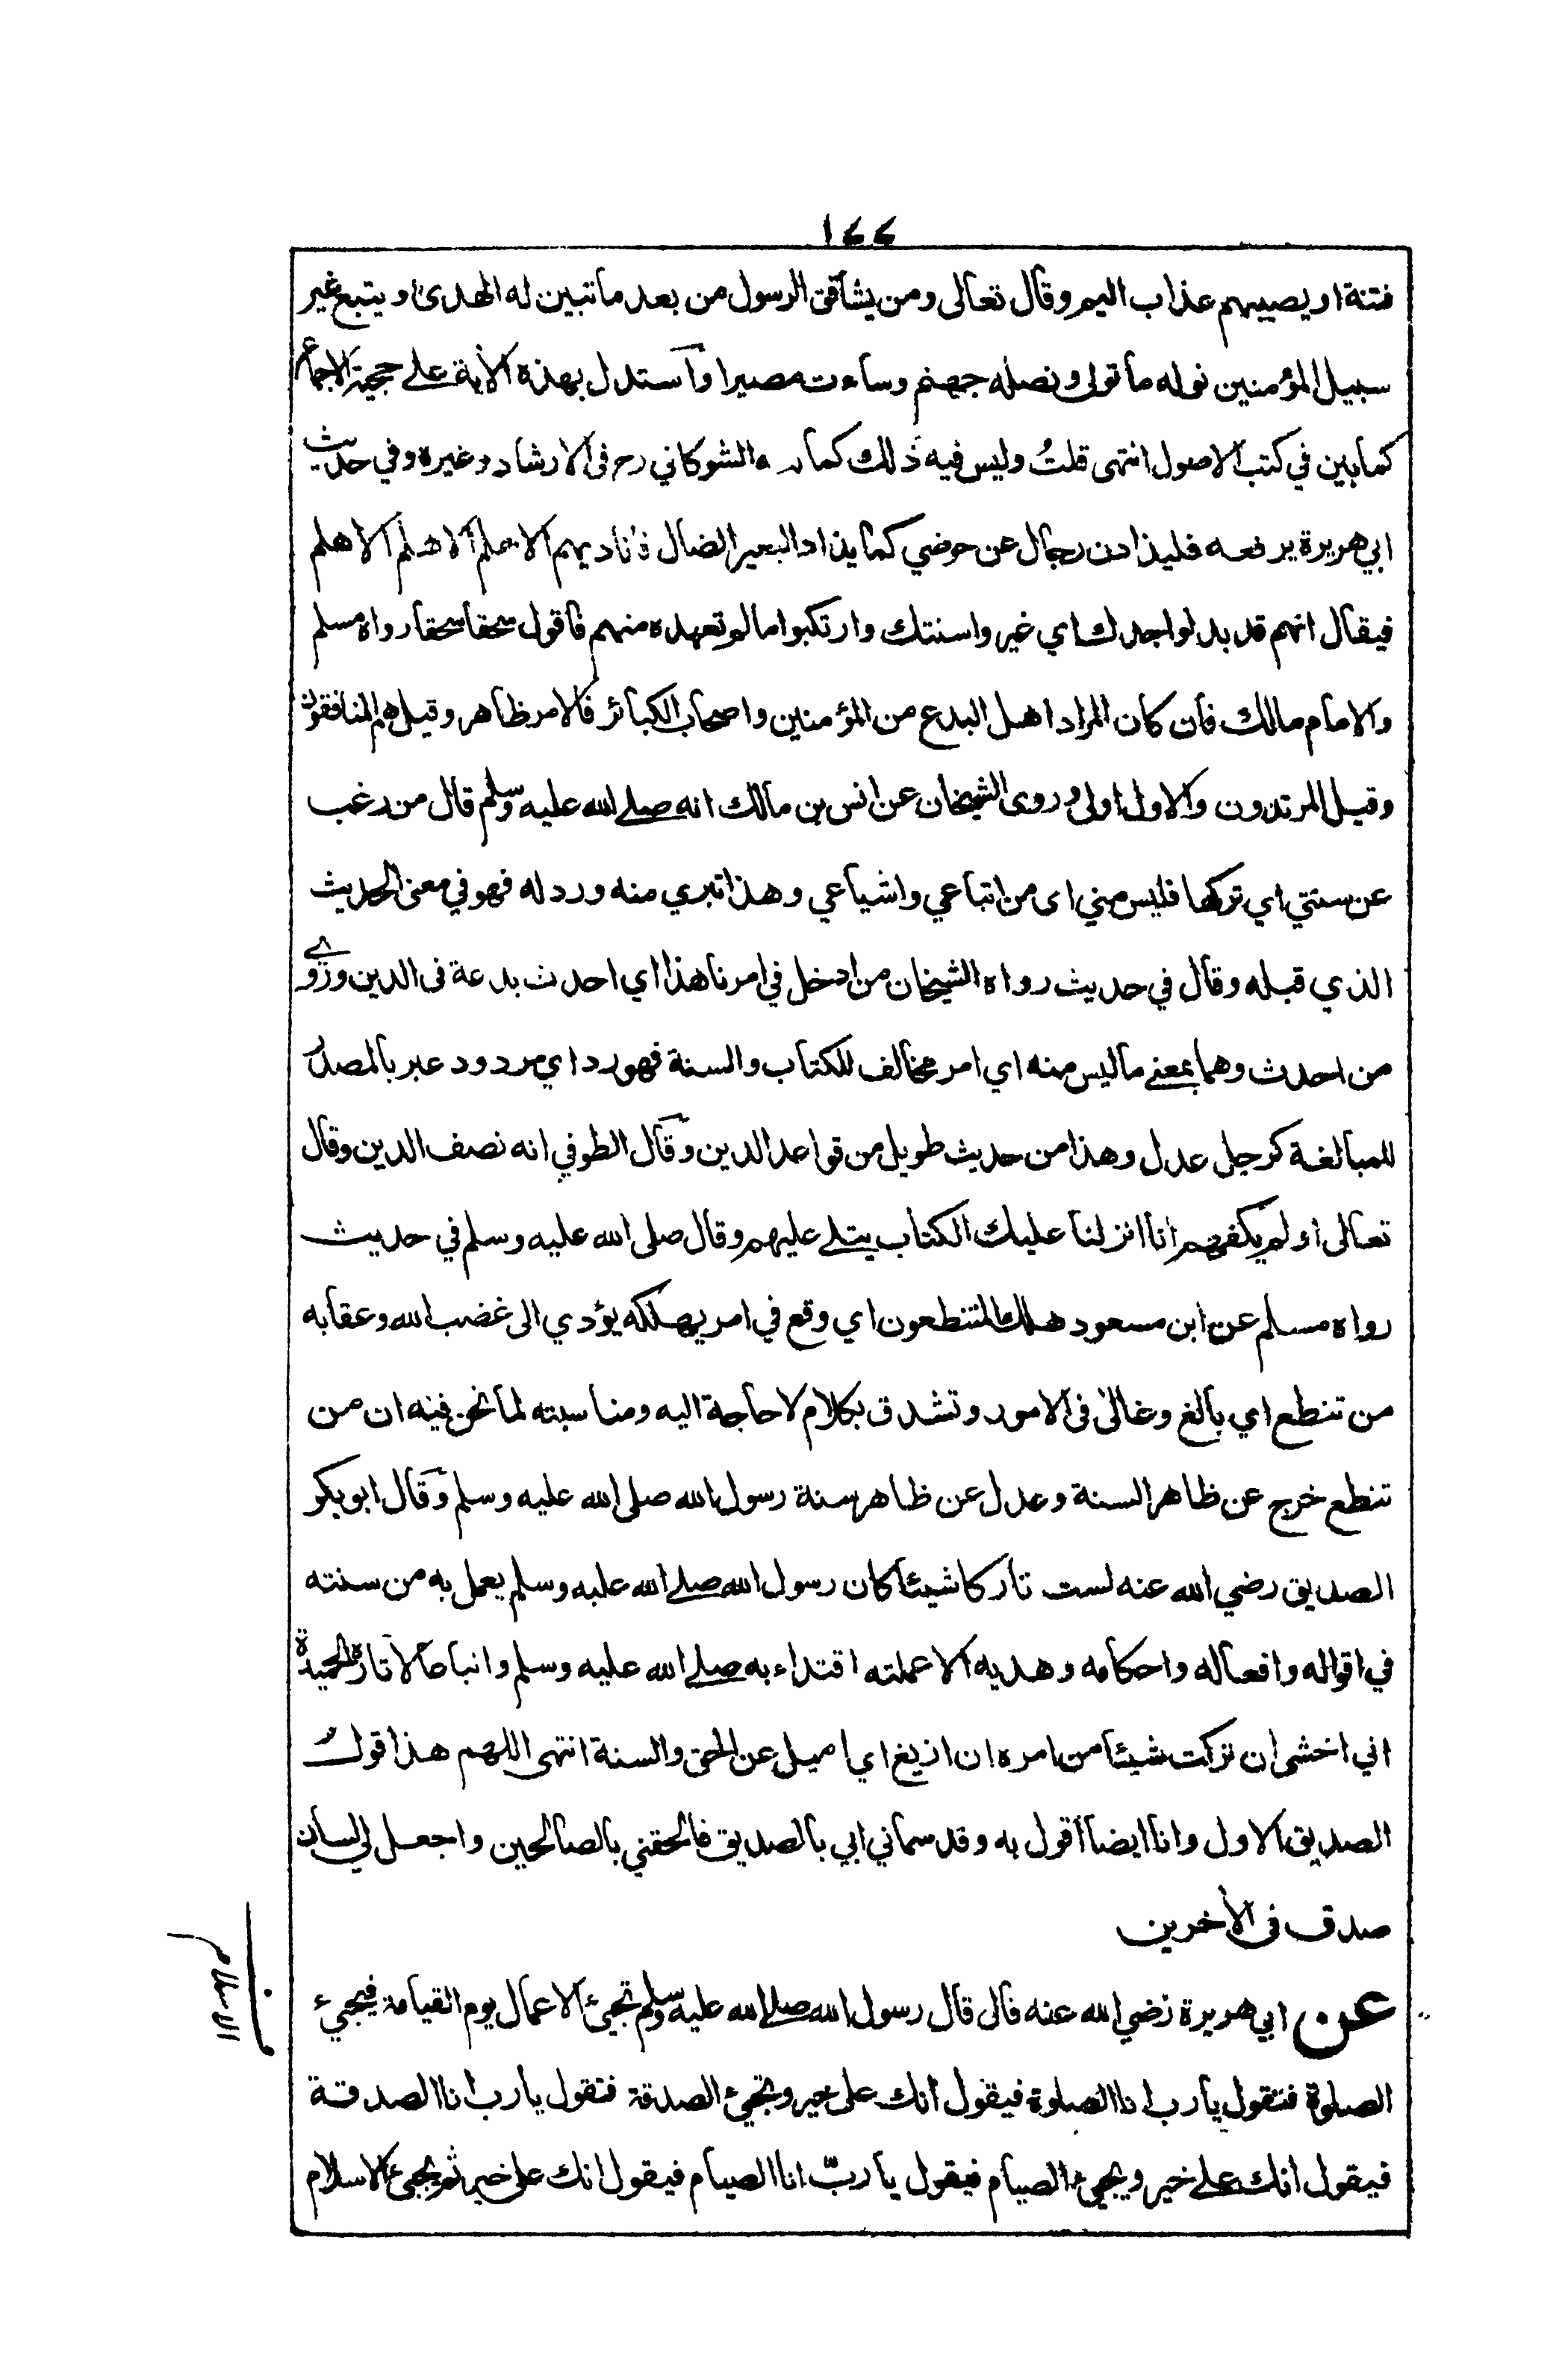 ١٤٤
فتنة او يصيبهم عذاب اليم وقال تعالى ومن يشاقق الرسول من بعد ما تبين له الهدى ويتبع غير
سبيل المؤمنين نوله ما تولى ونصله جهنم وساءت مصيرا وآستدل بهذه الأية على حجية الاجماع
كما بين في كتب الاصول انتهى قلتُ وليس فيه ذلك كما الشوكاني رح فى الارشاد وغيره وفي حديث
ابي هريرة يرفعه فليذادن رجال عن حوضي كما يذاد البعير الضال فاناديهم الا هلم الا هلم الا هلم
فيقال انهم قد بدلوا بعدك اي غيروا سنتك وارتكبوا ما لم تعهده منهم فاقول سحقا سحقا رواه مسلم
والامام مالك فان كان المراد اهل البدع من المؤمنين واصحاب الكبائر فالامر ظاهر وقيل هم المنافقون
وقيل المرتدون والاول اولى وروى الشيخان عن انس بن مالك انه صلے الله عليه وسلم قال من رغب
عن سنتي اي تركها فليس مني اى من اتباعي واشياعي وهذا تبري منه ورد له فهو في معنى الحديث
الذي قبله وقال في حديث رواه الشيخان من ادخل في امرنا هذا اي احدث بدعة فى الدين وروے
من احدث وهما بمعنے ما ليس منه اي امر مخالف للكتاب والسنة فهورد اي مردود عبر بالمصدر
للمبالغة كرجل عدل وهذا من حديث طويل من قواعد الدين وقال الطوفي انه نصف الدين وقال
تعالى اولم يكفهم انا انزلنا عليك الكتاب يتلے عليهم وقال صلى الله عليه وسلم في حديث
رواه مسلم عن ابن مسعود هلك المتنطعون اي وقع في امر يهلكه يؤدي الى غضب الله وعقابه
من تنطع اي بالغ وغالى فى الامور وتشدق بكلام لا حاجة اليه ومناسبته لما نحن فيه ان من
تنطع خرج عن ظاهر السنة وعدل عن ظاهر سنة رسول الله صلى الله عليه وسلم وقال ابو بكر
الصديق رضي الله عنه لست تاركا شيئا كان رسول الله صلے الله عليه وسلم يعمل به من سنته
في اقواله وافعاله واحكامه وهديه الا عملته اقتداء به صلے الله عليه وسلم واتباعا لاثاره الحميدة
اني اخشى ان تركت شيئا من امره ان ازيغ اي اميل عن الحق والسنة انتهى اللهم هذا قول
الصديق الاول وانا ايضا أقول به وقد سماني ابي بالصديق فالحقني بالصالحين واجعل لي لسان
صدق فى الأخرين
عن ابي هريرة رضي الله عنه قال قال رسول الله صلے الله عليه وسلم تجئ الاعمال يوم القيامة فيجيء
الصلوة فتقول يا رب انا الصلوة فيقول انك على خير وتجيء الصدقة فتقول يا رب انا الصدقة
فيقول انك علے خير ويجيء الصيام فيقول يا ربّ انا الصيام فيقول انك على خير ثم يجئ الاسلام
الاسلام